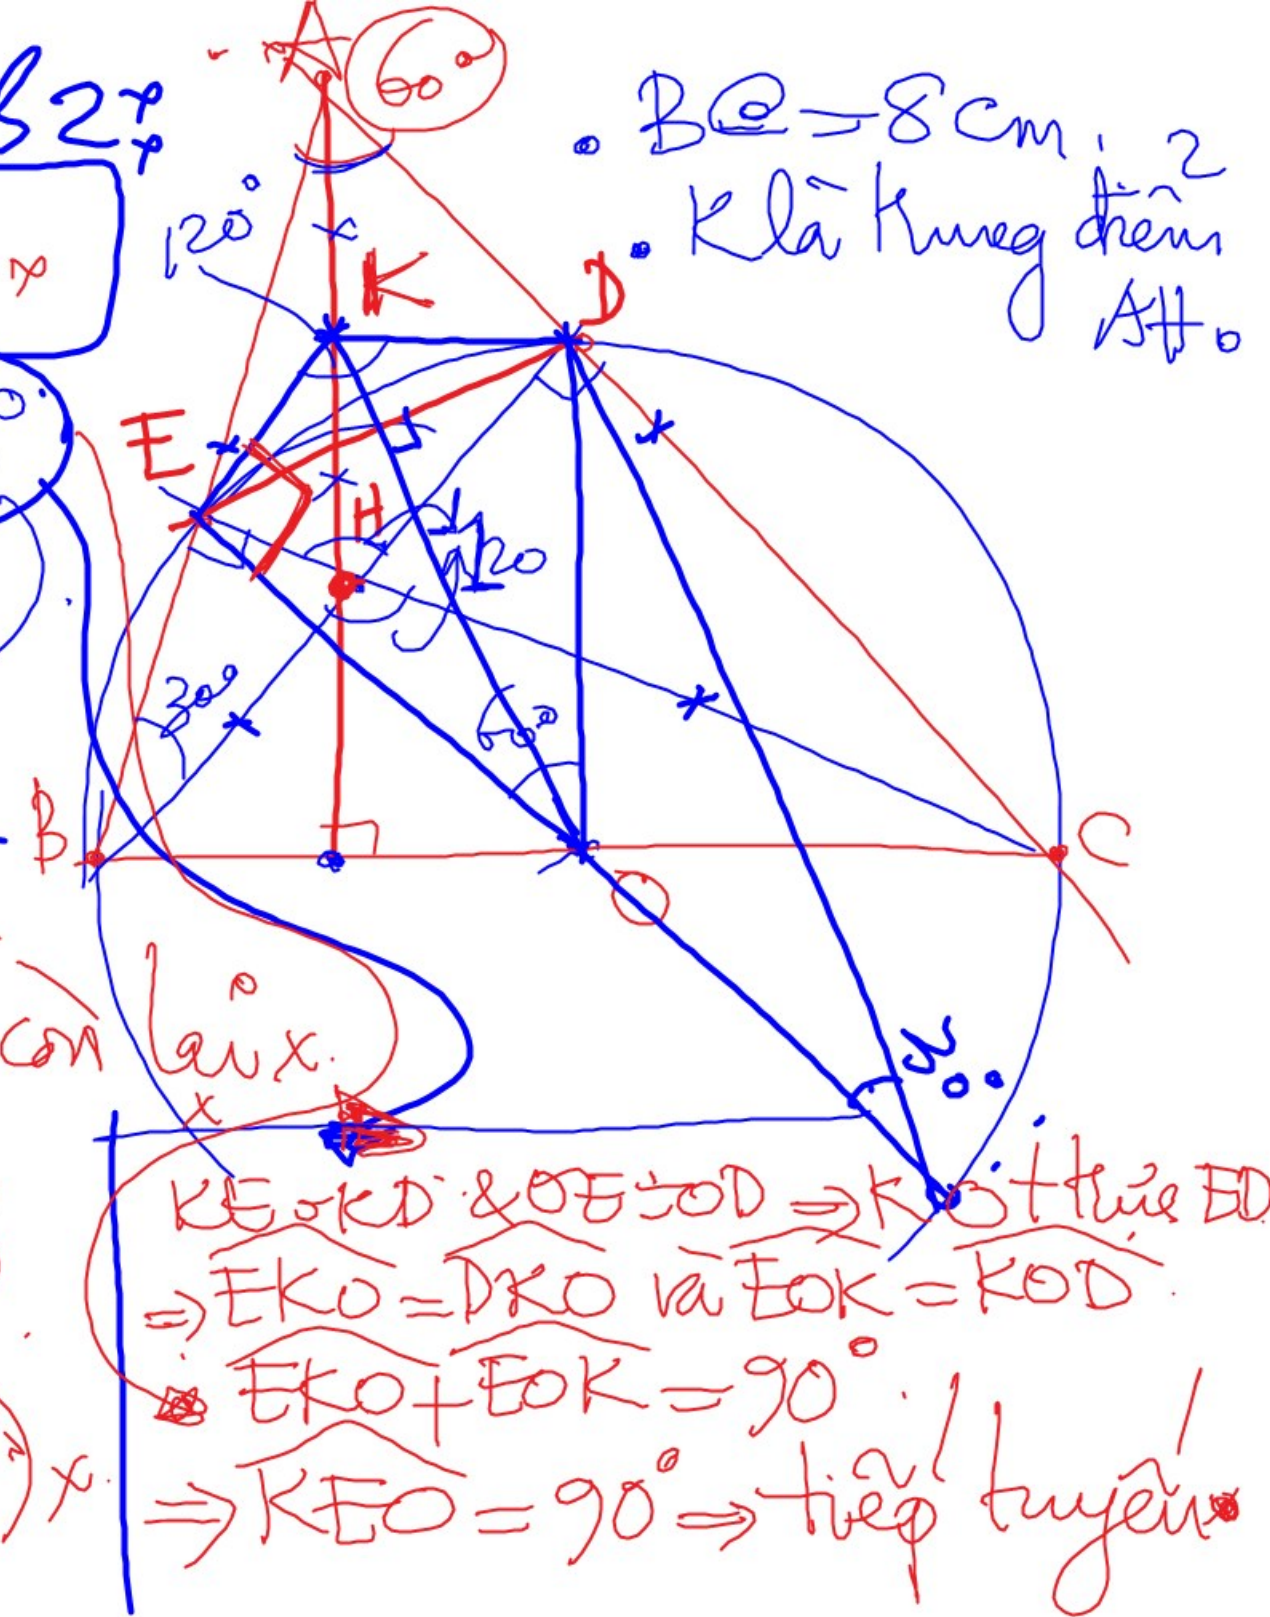 A 60°
. BC = 8cm.
120° . K là trung điểm
AH.
K D
E
H
120
30°
60°
B C
O
còn lại x.
x
KE=KD & OE=OD ⇒ KO t.thức ED
⇒ EKO = DKO và EOK = KOD.
EKO + EOK = 90°.
x. ⇒ KEO = 90° ⇒ tiếp tuyến.